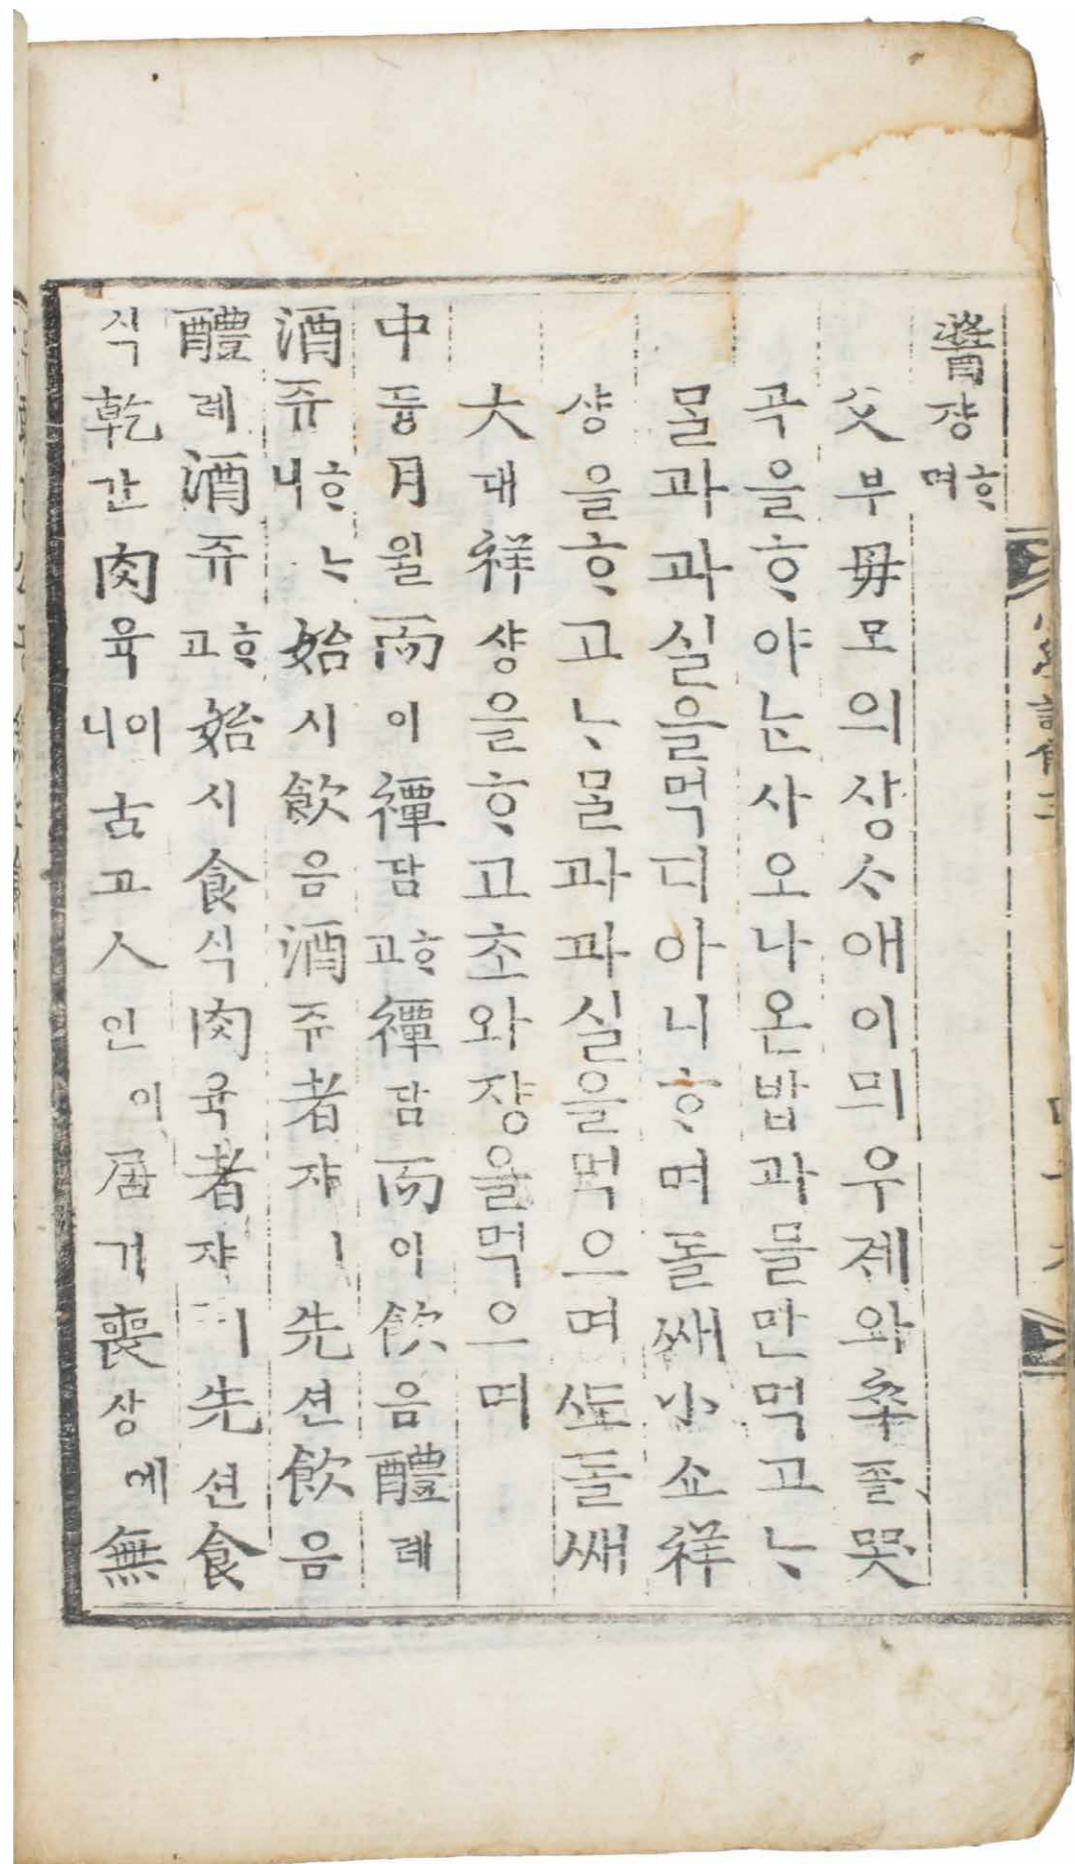 醬쟝ᄒᆞ며
父부毋모의상ᄉᆞ애이믜우졔와卒졸哭
곡을ᄒᆞ야ᄂᆞᆫ사오나온밥과믈만먹고ᄂᆞ
ᄆᆞᆯ과과실을먹디아니ᄒᆞ며돌쌔小쇼祥
샹을ᄒᆞ고ᄂᆞᄆᆞᆯ과과실을먹으며ᄯᅩ돌쌔
大대祥샹을ᄒᆞ고초와쟝을먹으며
中듕月월而이禫담ᄒᆞ고禫담而이飮음醴례
酒쥬ᄒᆞᄂᆞ니始시飮음酒쥬者쟈ㅣ先션飮음
醴례酒쥬ᄒᆞ고始시食식肉육者쟈ㅣ先션食
식乾간肉육이니古고人인이居거喪상에無